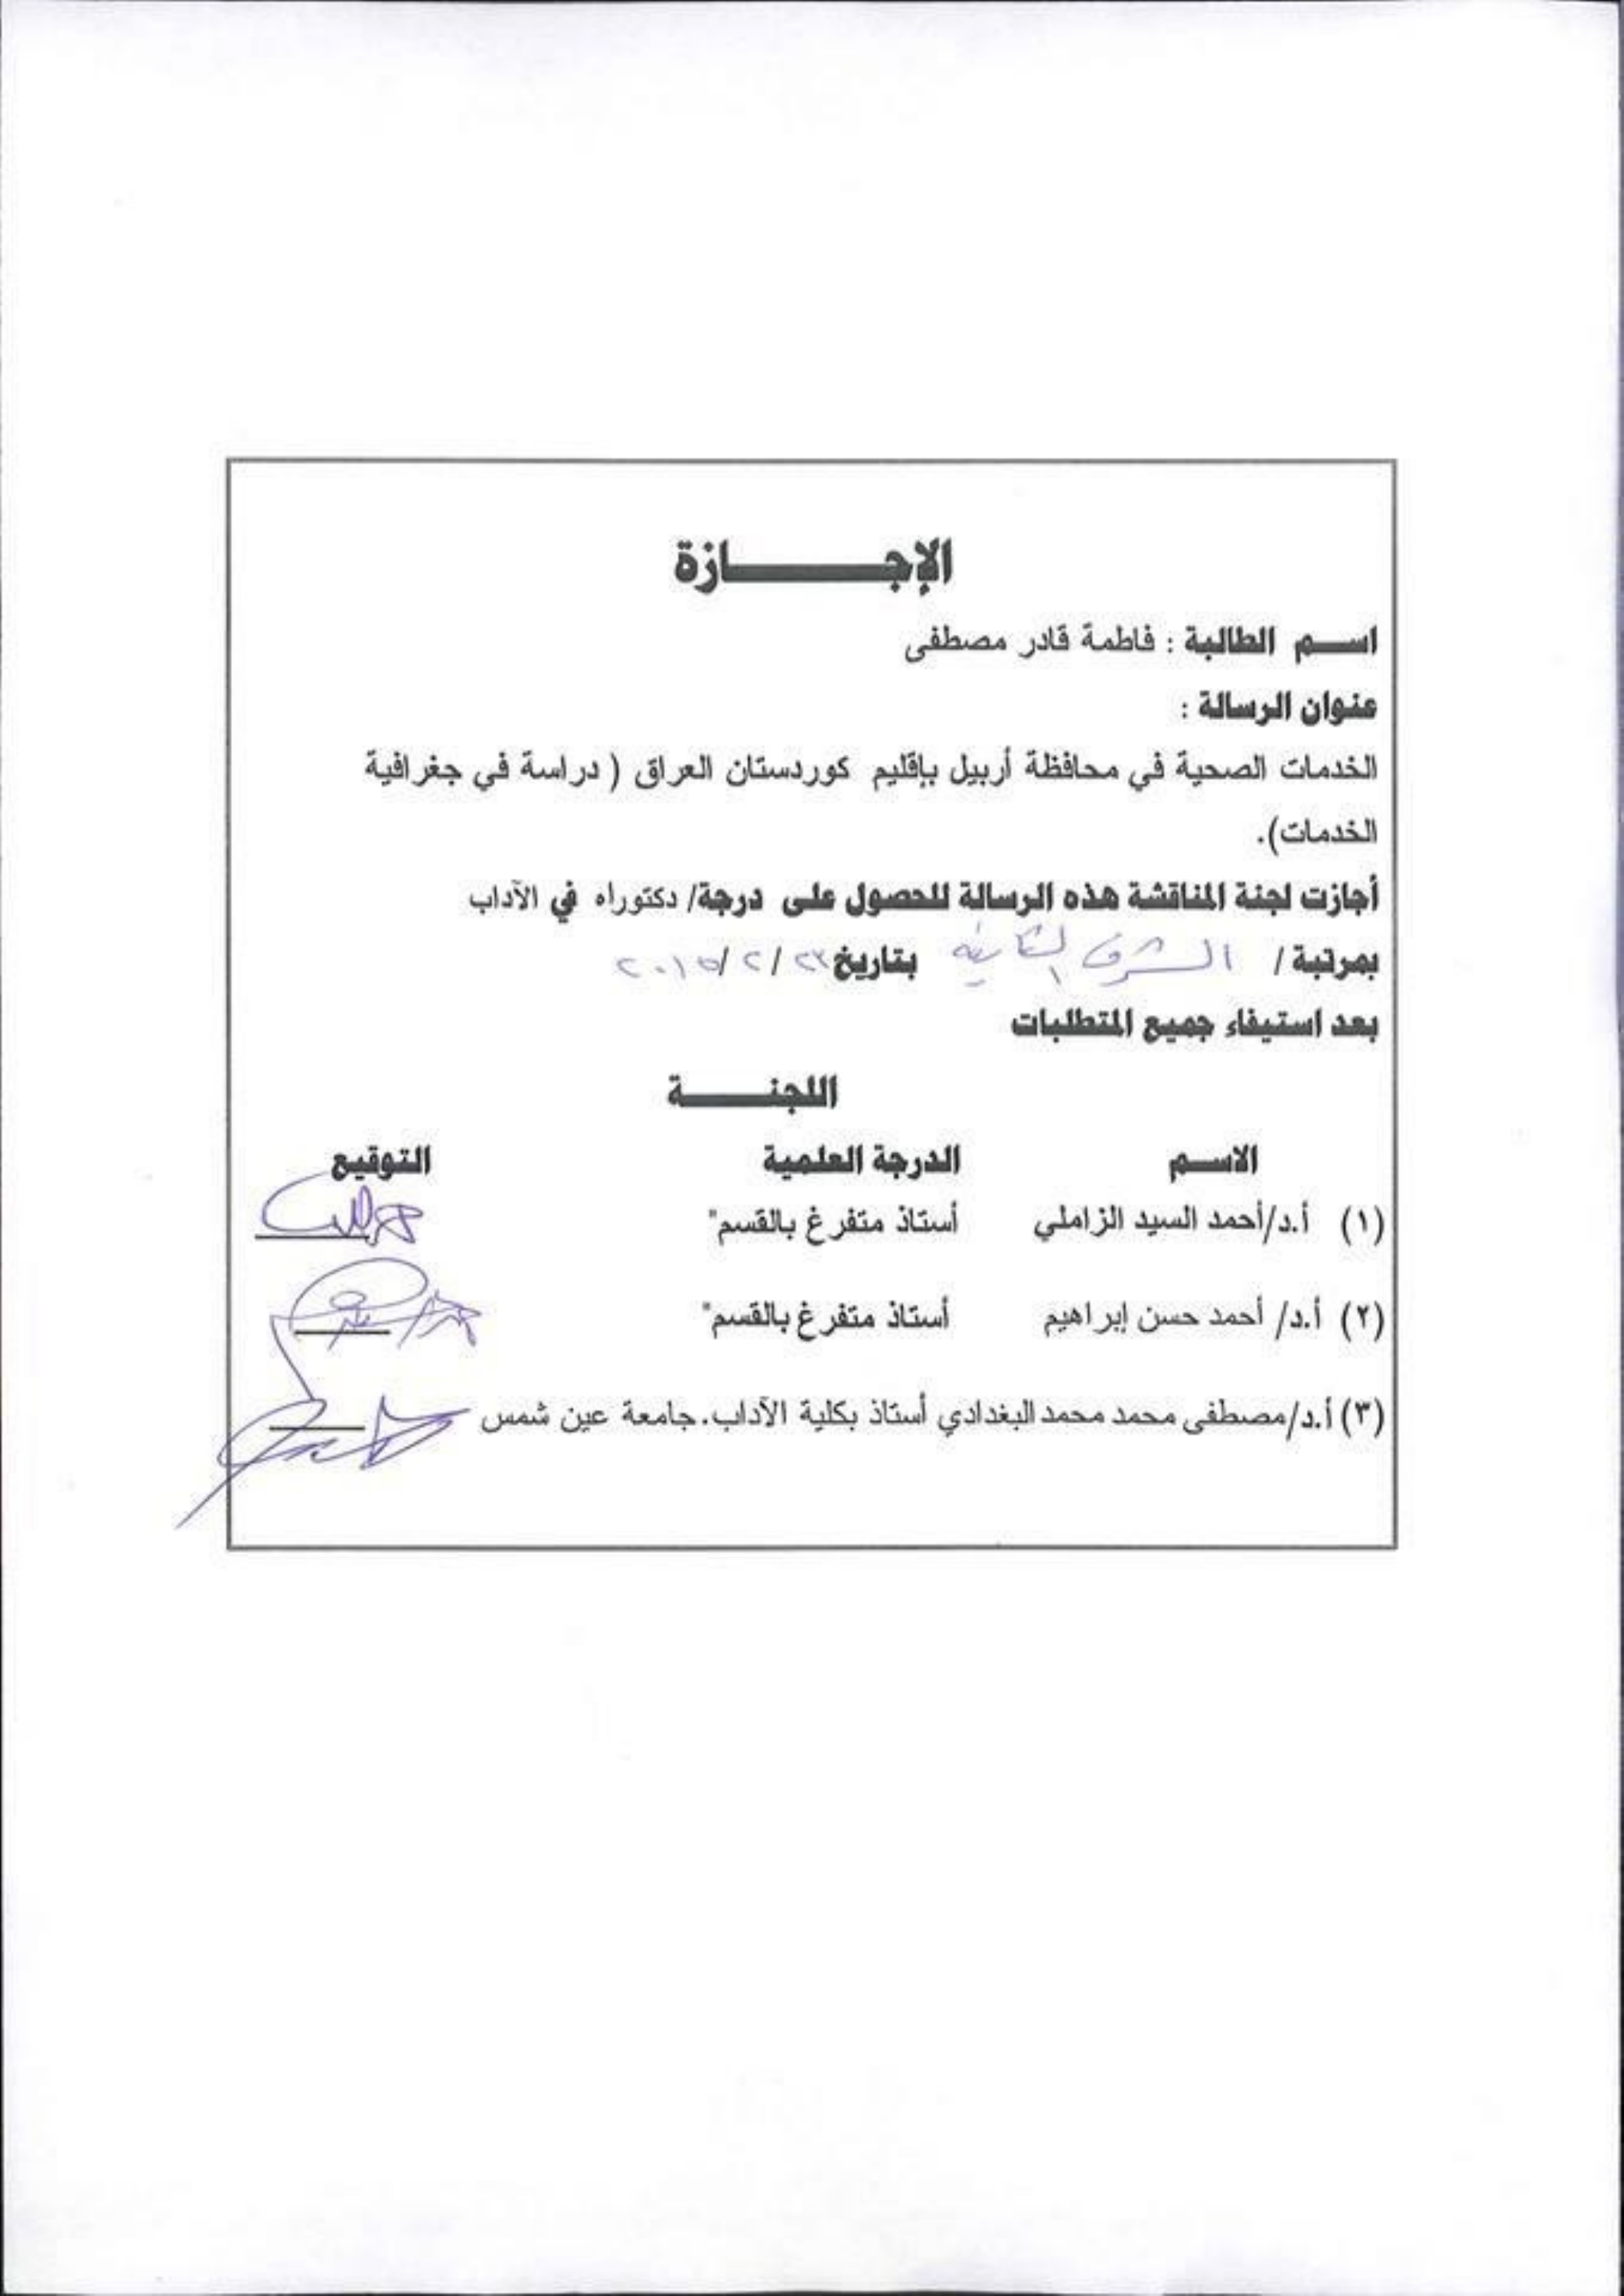 الإجــــــــازة
اســم الطالبة : فاطمة قادر مصطفى
عنوان الرسالة :
الخدمات الصحية في محافظة أربيل بإقليم كوردستان العراق ( دراسة في جغرافية
الخدمات).
أجازت لجنة المناقشة هذه الرسالة للحصول على درجة/ دكتوراه في الآداب
بمرتبة / الشرف الثانية بتاريخ ٢٣/ ٢/ ٢٠١٥
بعد استيفاء جميع المتطلبات
اللجنــــــة
الاســم الدرجة العلمية التوقيع
(١) أ.د/أحمد السيد الزاملي أستاذ متفرغ بالقسم"
(٢) أ.د/ أحمد حسن إبراهيم أستاذ متفرغ بالقسم"
(٣) أ.د/مصطفى محمد محمد البغدادي أستاذ بكلية الآداب.جامعة عين شمس